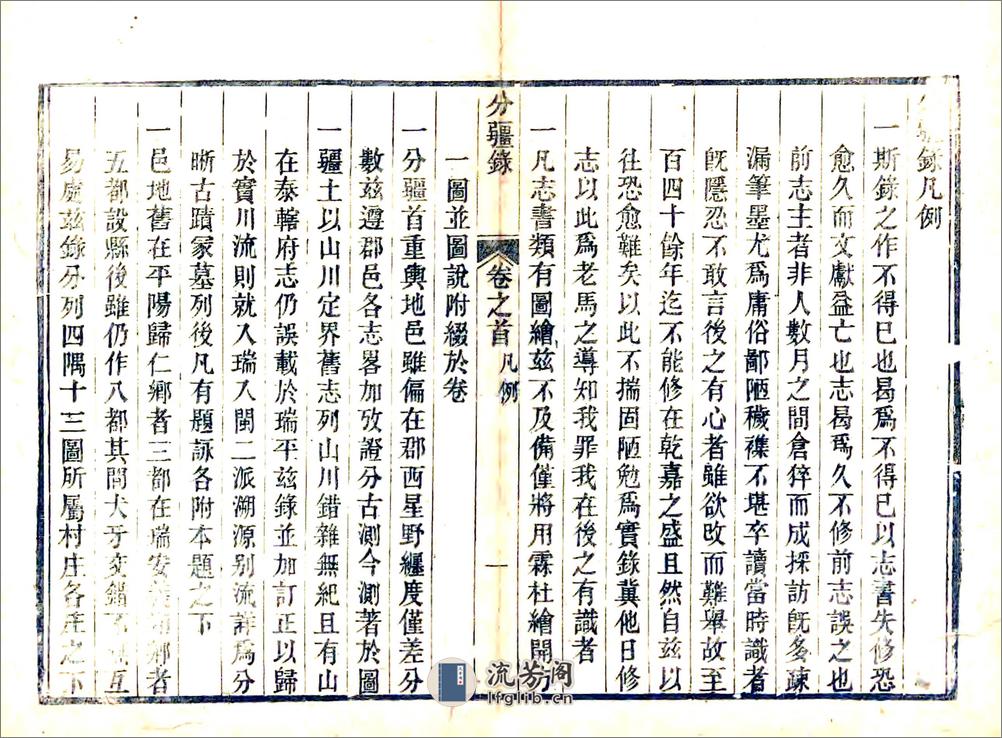 疆錄凡例
一斯錄之作不得已也曷爲不得已以志書失修恐
愈久而文獻益亡也志曷爲久不修前志誤之也
前志主者非人數月之間倉猝而成採訪旣多疎
漏筆墨尤爲庸俗鄙陋穢襍不堪卒讀當時識者
旣隱忍不敢言後之有心者雖欲改而難舉故至
百四十餘年迄不能修在乾嘉之盛且然自茲以
往恐愈難矣以此不揣固陋勉爲實錄冀他日修
志以此爲老馬之導知我罪我在後之有識者
一凡志書類有圖繪茲不及備僅將用霖杜繪開
分疆錄 卷之首 凡例 一
一圖並圖說附綴於卷
一分疆首重輿地邑雖偏在郡西星野纒度僅差分
數茲遵郡邑各志畧加攷證分古測今測著於圖
一疆土以山川定界舊志列山川錯雜無紀且有山
在泰轄府志仍誤載於瑞平茲錄並加訂正以歸
於實川流則就入瑞入閩二派溯源别流詳爲分
晰古蹟冢墓列後凡有題詠各附本題之下
一邑地舊在平陽歸仁鄉者三都在瑞安鄉者
五都設縣後雖仍作八都其間犬牙交錯互
易處茲錄分列四隅十三圖所屬村庄各庄之下
流芳阁
lfglib.cn